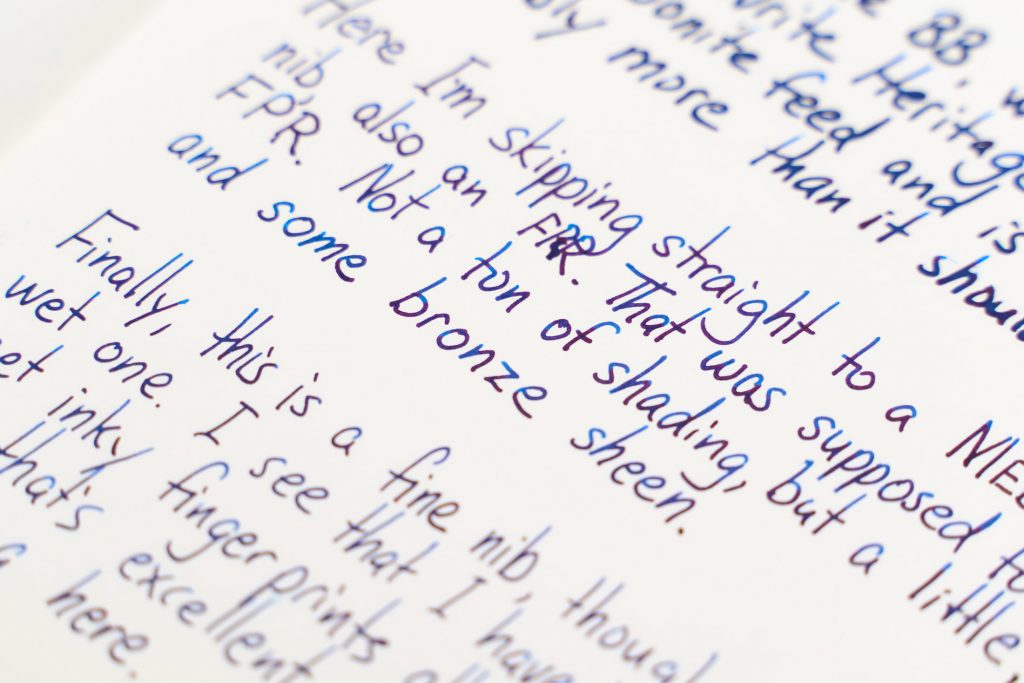 BB, w
Heritage
feed and is
more than it shoul
Here I'm skipping straight to a MED
nib, also an FPR. That was supposed to
FPR. Not a ton of shading, but a little,
and some bronze sheen.
Finally, this is a fine nib, though
wet one. I see that I have
inky fingerprints
that's excellent
here.